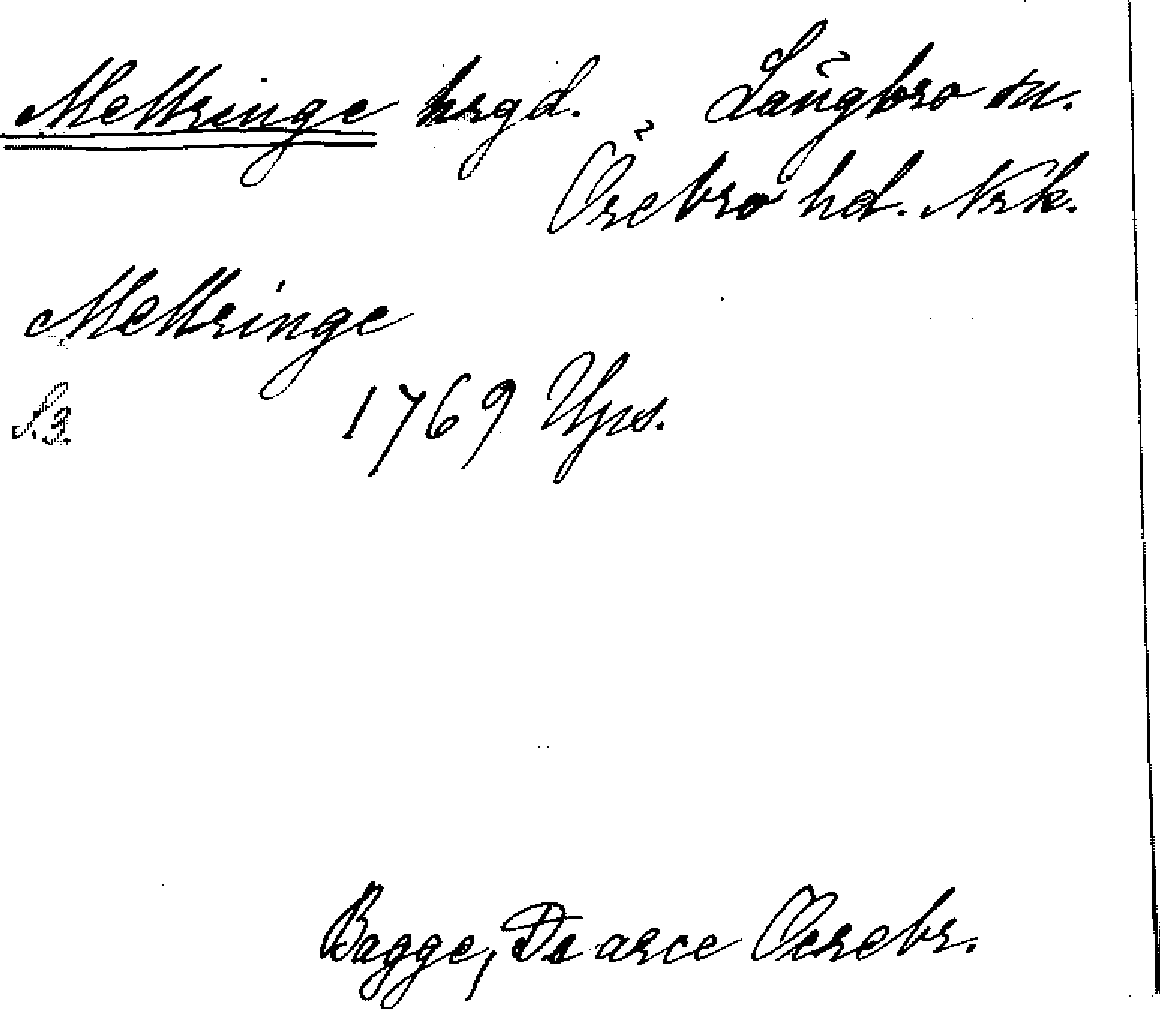 Mellringe hrgd. Längbro sn.
Örebro hd. Nrk.
Mellringe
1769 Ups.
Bagge, De arce Oerebr.